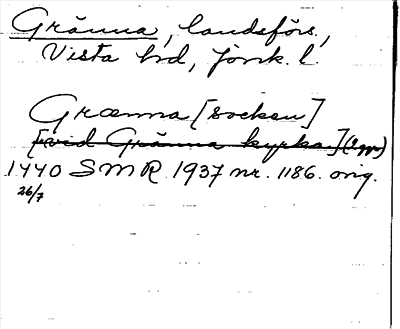 Gränna, landsförs.,
Vista hd, Jönk. l.
Grænna [socken]
[vid Gränna kyrka]
1440 SMR 1937 nr. 1186. orig.
26/7